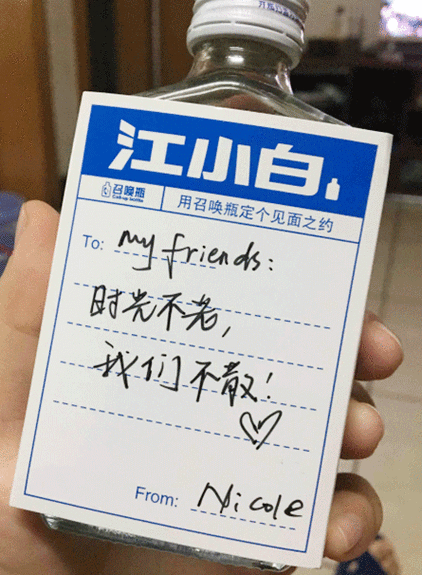 江小白
召唤瓶
Call-up bottle
用召唤瓶定个见面之约
To: my friends:
时光不老,
我们不散!
From: Nicole